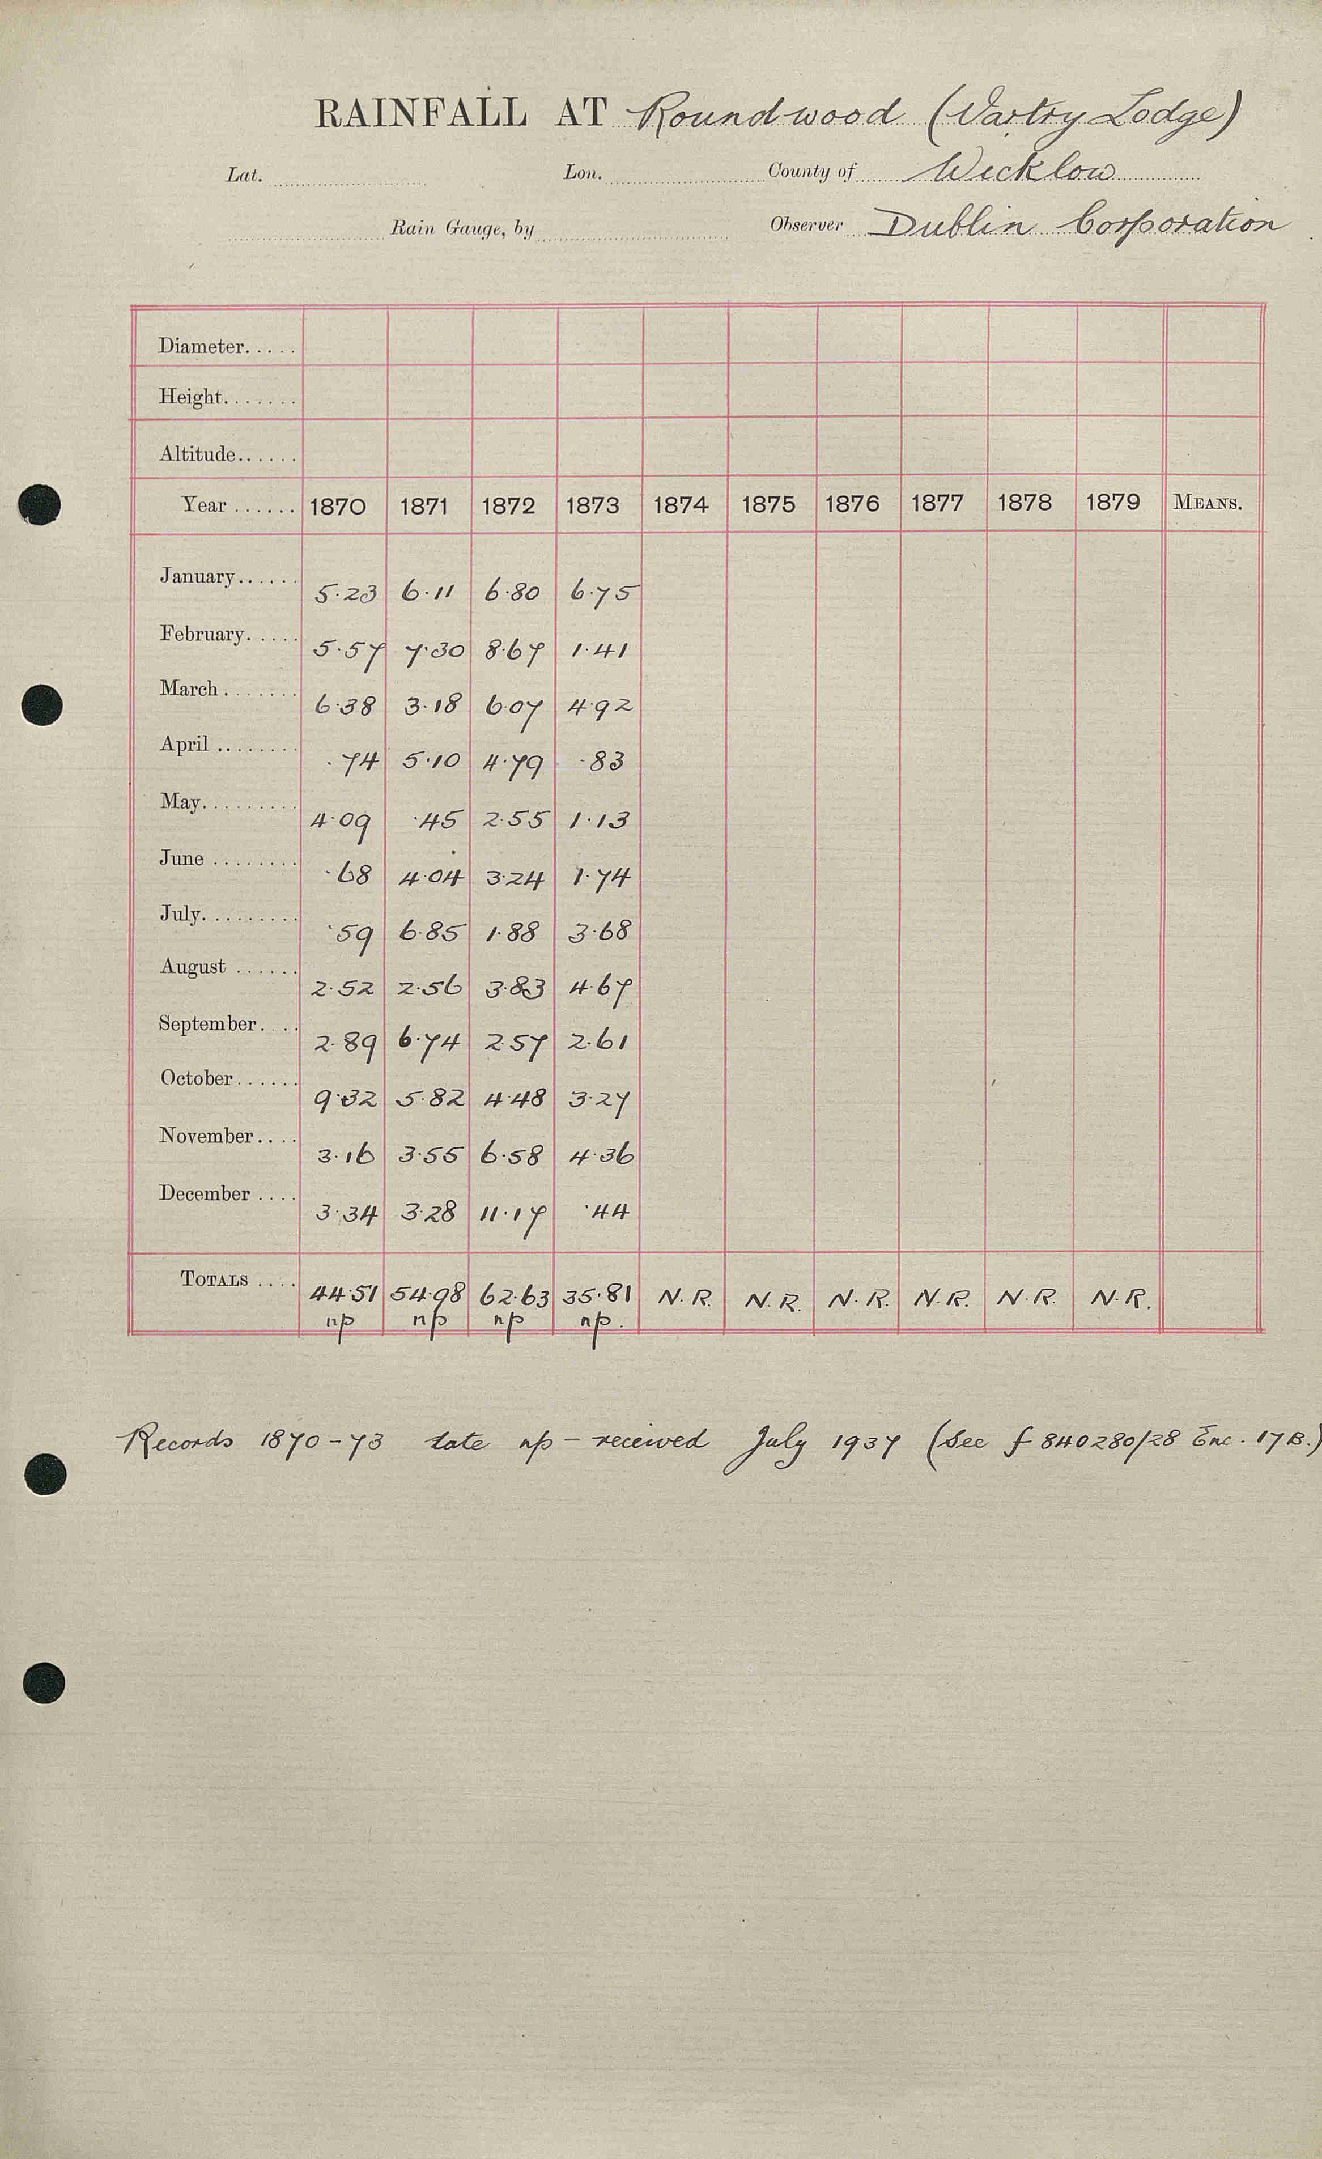 RAINFALL AT Roundwood (Vartry Lodge)
Lat. Lon. County of Wicklow
Rain Gauge, by Observer Dublin Corporation
Diameter.....
Height.......
Altitude......
Year ...... 1870 1871 1872 1873 1874 1875 1876 1877 1878 1879 MEANS.
January...... 5.23 6.11 6.80 6.75
February..... 5.57 7.30 8.67 1.41
March ....... 6.38 3.18 6.07 4.92
April ........ .74 5.10 4.79 .83
May......... 4.09 .45 2.55 1.13
June ........ .68 4.04 3.24 1.74
July......... .59 6.85 1.88 3.68
August ...... 2.52 2.56 3.83 4.67
September. .. 2.89 6.74 2.57 2.61
October...... 9.32 5.82 4.48 3.27
November.... 3.16 3.55 6.58 4.36
December .... 3.34 3.28 11.17 .44
TOTALS .... 44.51 54.98 62.63 35.81 N.R. N.R. N.R. N.R. N.R. N.R.
np np np np.
Records 1870-73 late np - received July 1937 (See f 840280/28 Enc. 17B.)